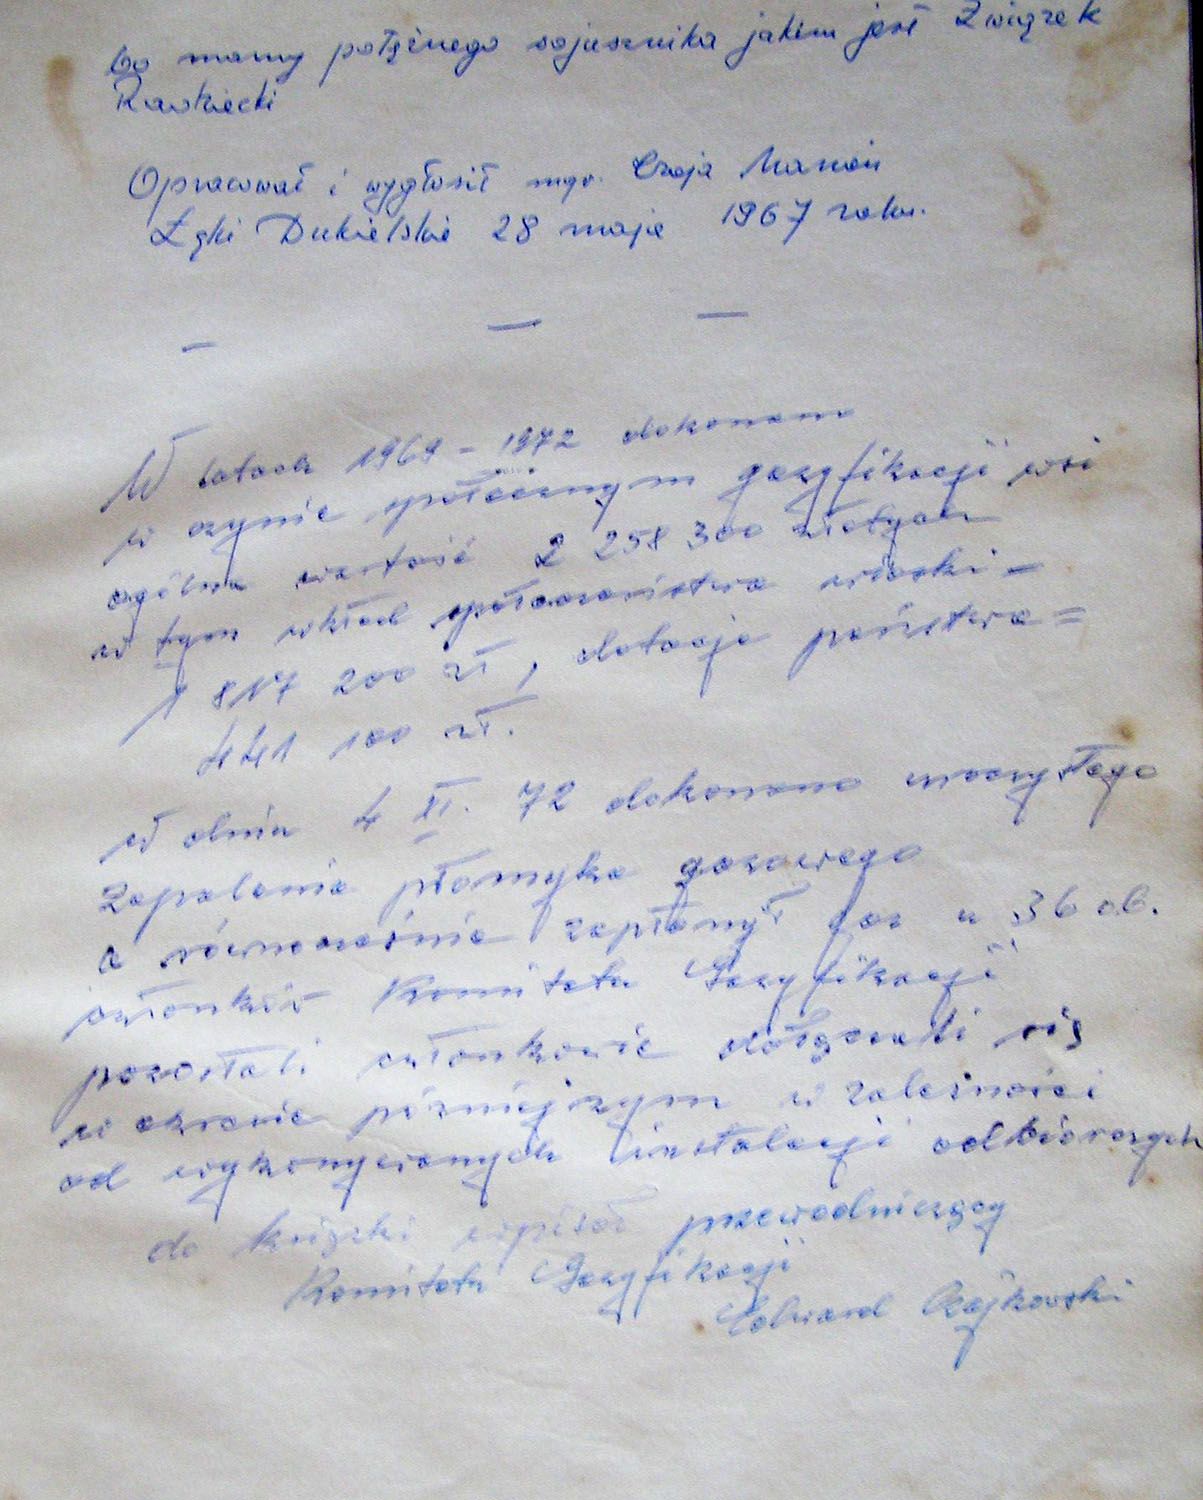 bo mamy potężnego sojusznika jakim jest Związek
Radziecki
Opracował i wygłosił mgr. Czaja Marian
Łęki Dukielskie 28 maja 1967 roku.
— — —
W latach 1969 - 1972 dokonano
w czynie społecznym gazyfikacji wsi
ogólna wartość 2 258 300 złotych
w tym wkład społeczeństwa wioski -
1 817 200 zł, dotacja państwa =
441 100 zł.
W dniu 4 XI. 72 dokonano uroczystego
zapalenia płomyka gazowego
a równocześnie zapłonął gaz u 36 ob.
członków Komitetu Gazyfikacji
pozostali członkowie dołączali się
w okresie późniejszym w zależności
od wykonywanych instalacji odbiorczych
do książki wpisał przewodniczący
Komitetu Gazyfikacji
Edward Czajkowski